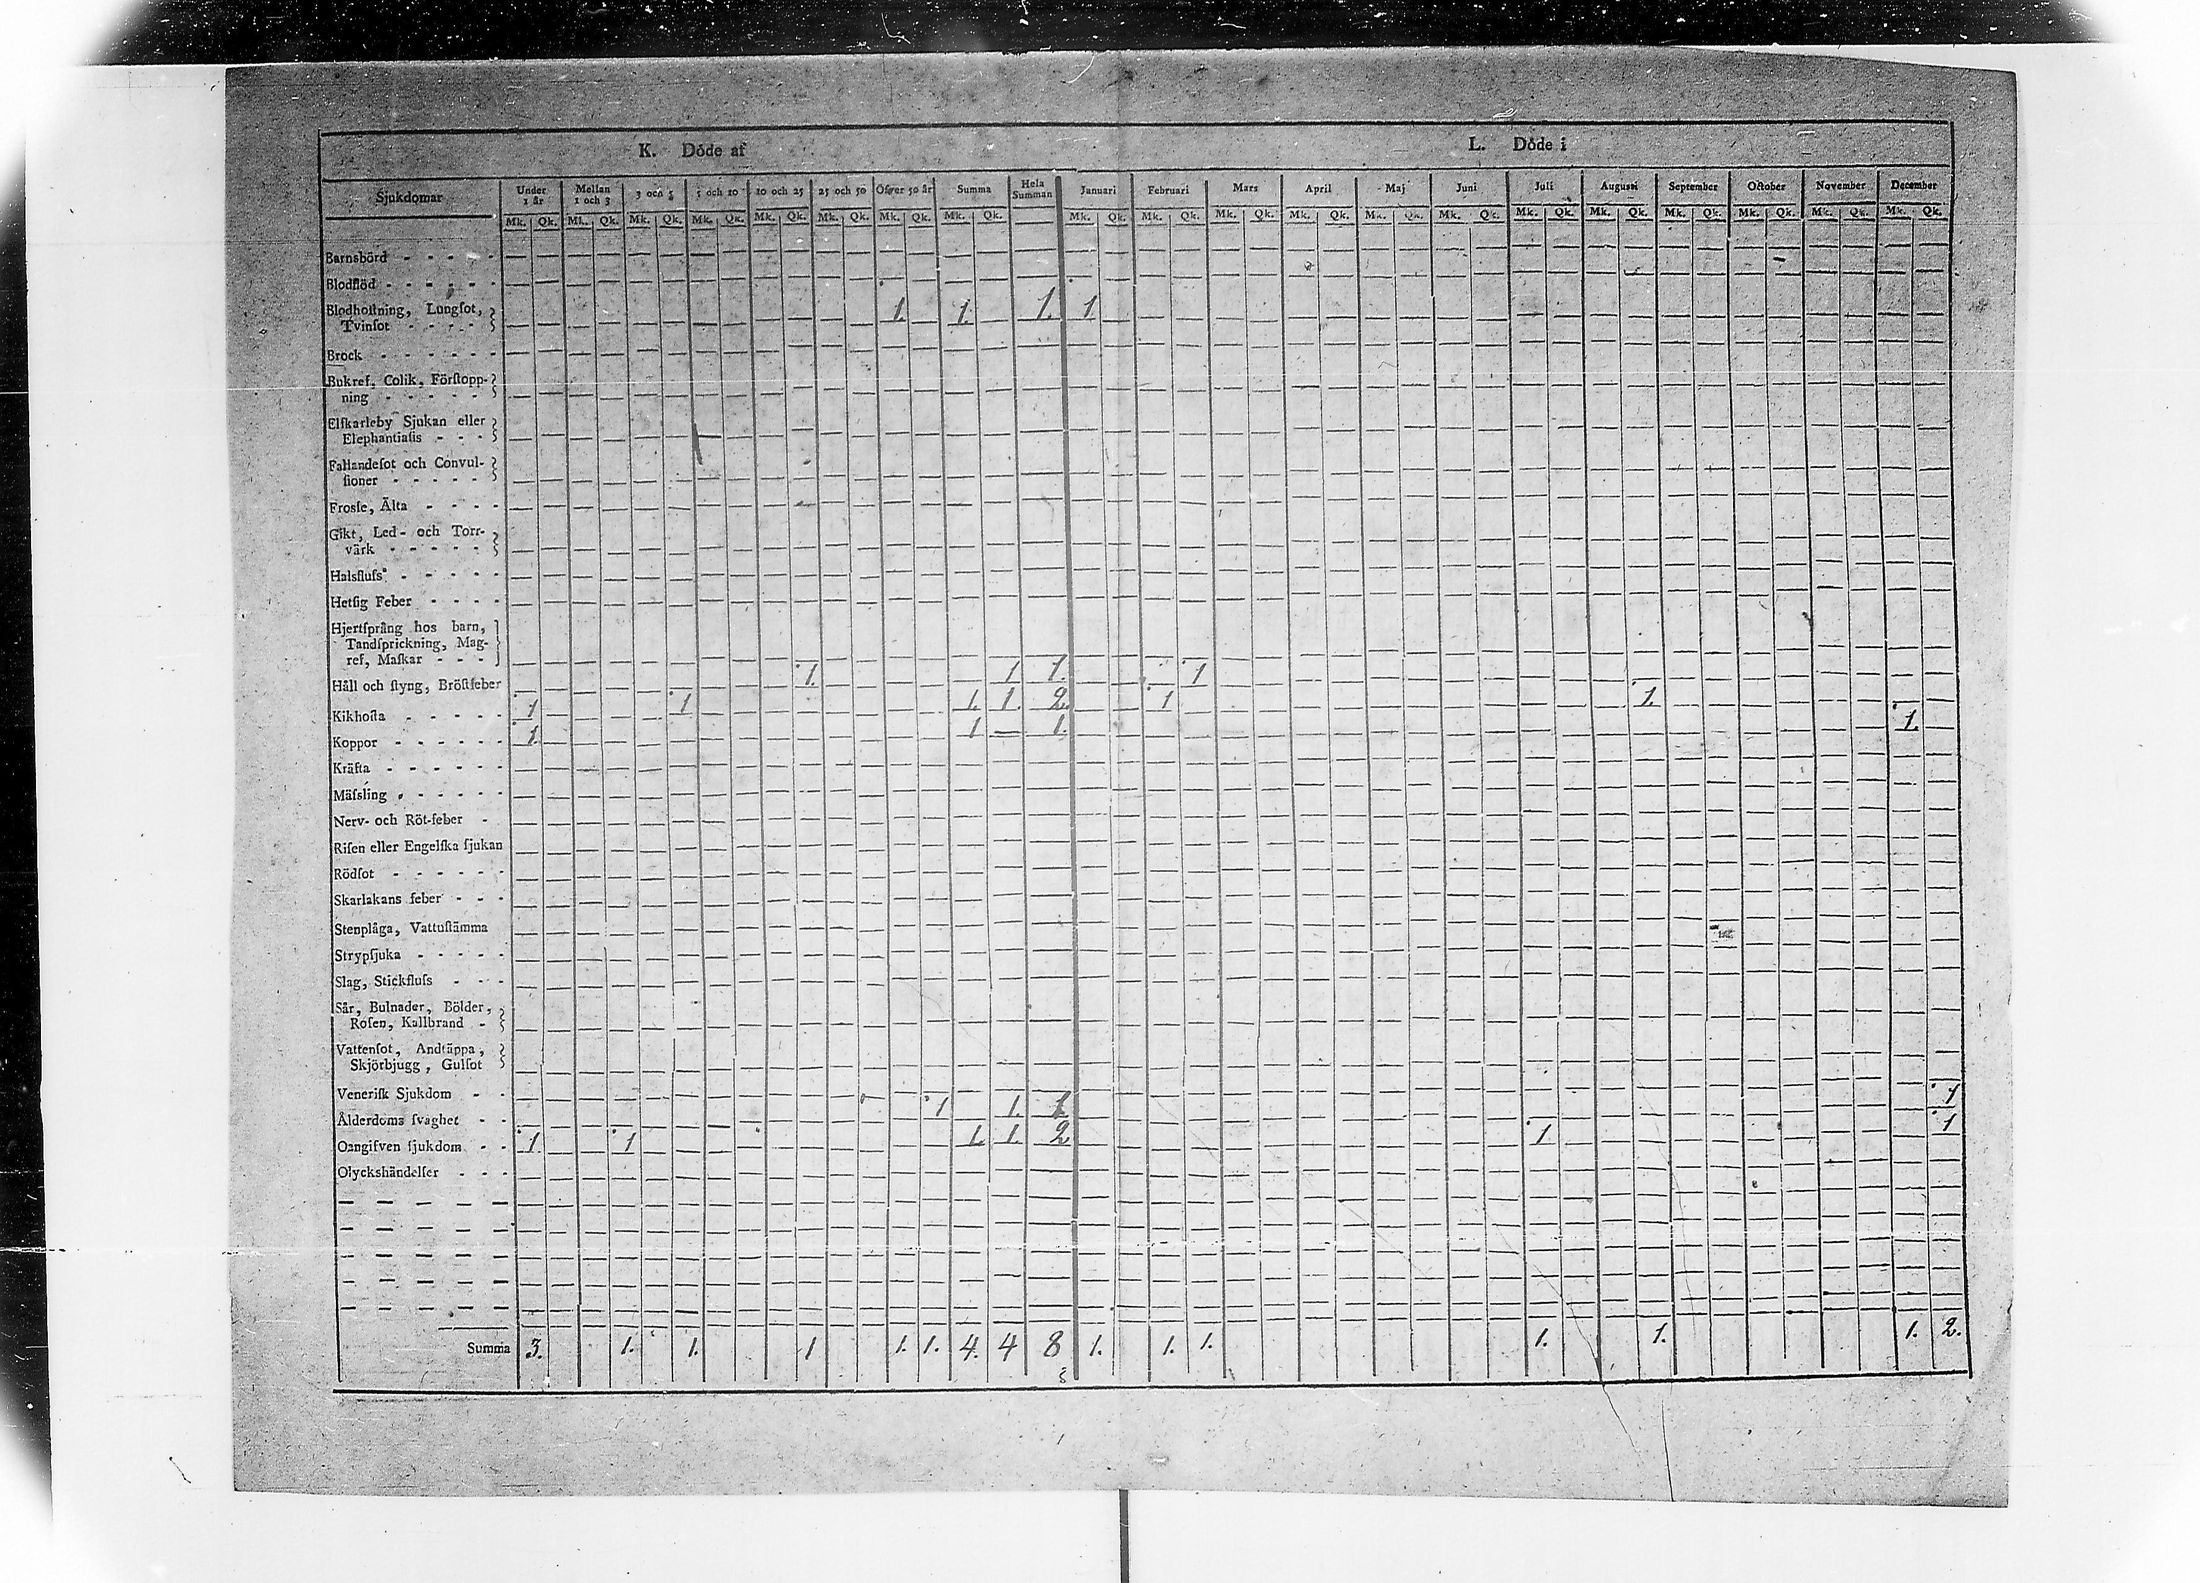 K. Döde af L. Döde i
Sjukdomar Under 1 år Mellan 1 och 3 3 och 5 5 och 10 10 och 25 25 och 50 Öfver 50 år Summa Hela Summan Januari Februari Mars April Maj Juni Juli Augusti September October November December
Mk. Qk. Mk. Qk. Mk. Qk. Mk. Qk. Mk. Qk. Mk. Qk. Mk. Qk. Mk. Qk. Mk. Qk. Mk. Qk. Mk. Qk. Mk. Qk. Mk. Qk. Mk. Qk. Mk. Qk. Mk. Qk. Mk. Qk. Mk. Qk. Mk. Qk. Mk. Qk.
Barnsbörd - - - - -
Blodflöd - - - - - -
Blodhoſtning, Lungſot,
Tvinſot - - - - 1. 1. 1. 1
Brock - - - - - -
Bukref, Colik, Förſtopp-
ning - - - - -
Elſkarleby Sjukan eller
Elephantiaſis - - -
Fallandeſot och Convul-
ſioner - - - - -
Frosſe, Älta - - - -
Gikt, Led- och Torr-
värk - - - - -
Halsfluſs - - - - -
Hetſig Feber - - - -
Hjertſprång hos barn,
Tandſprickning, Mag-
ref, Maſkar - - -
Håll och ſtyng, Bröſtfeber 1. 1 1. 1
Kikhoſta - - - - - 1 1 1. 1. 2. 1 1.
Koppor - - - - - - 1. 1 — 1. 1.
Kräfta - - - - - -
Mäſsling - - - - - -
Nerv- och Röt-feber -
Riſen eller Engelſka ſjukan
Rödſot - - - - - -
Skarlakans feber - - -
Stenplåga, Vattuſtämma
Strypſjuka - - - - -
Slag, Stickfluſs - - -
Sår, Bulnader, Bölder,
Roſen, Kallbrand -
Vattenſot, Andtäppa,
Skjörbjugg, Gulſot
Veneriſk Sjukdom - -
Ålderdoms ſvaghet - - 1 1. 1. 1
Oangifven ſjukdom - - 1. 1 1. 1. 2 1 1
Olyckshändelſer - - -
Summa 3. 1. 1. 1 1. 1. 4. 4 8 1. 1. 1. 1. 1. 1. 2.